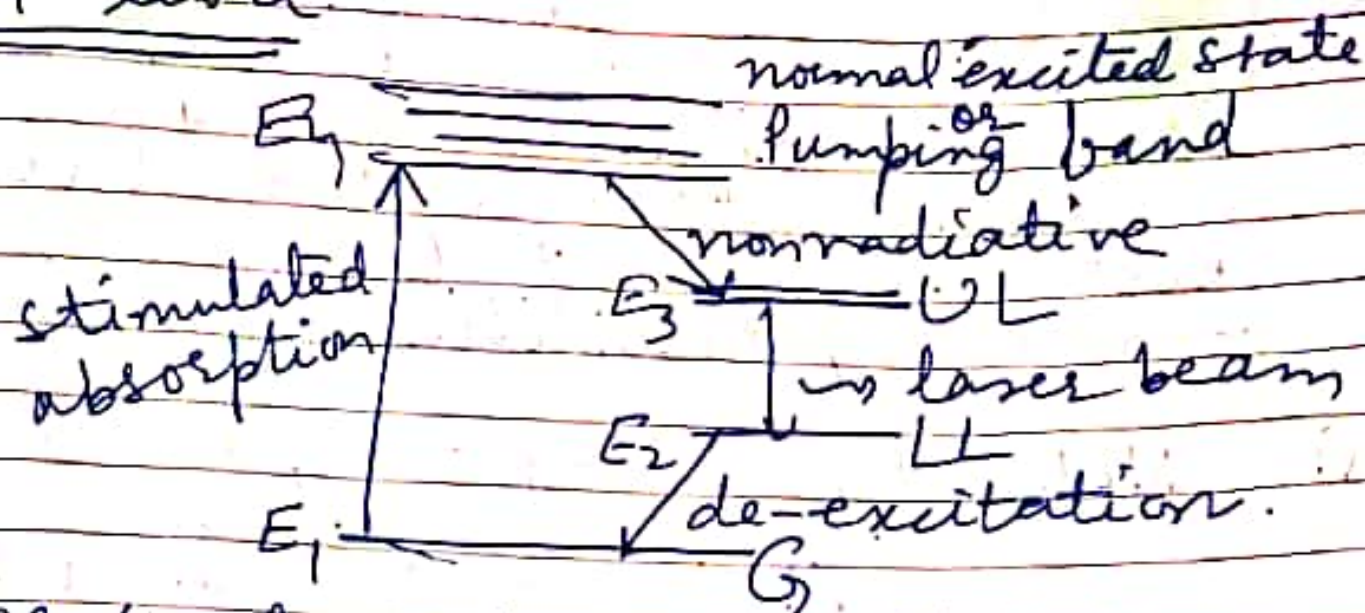 normal excited state
or
Pumping band
E4
nonradiative
stimulated
absorption
E3 UL
laser beam
E2 LL
de-excitation.
E1 G